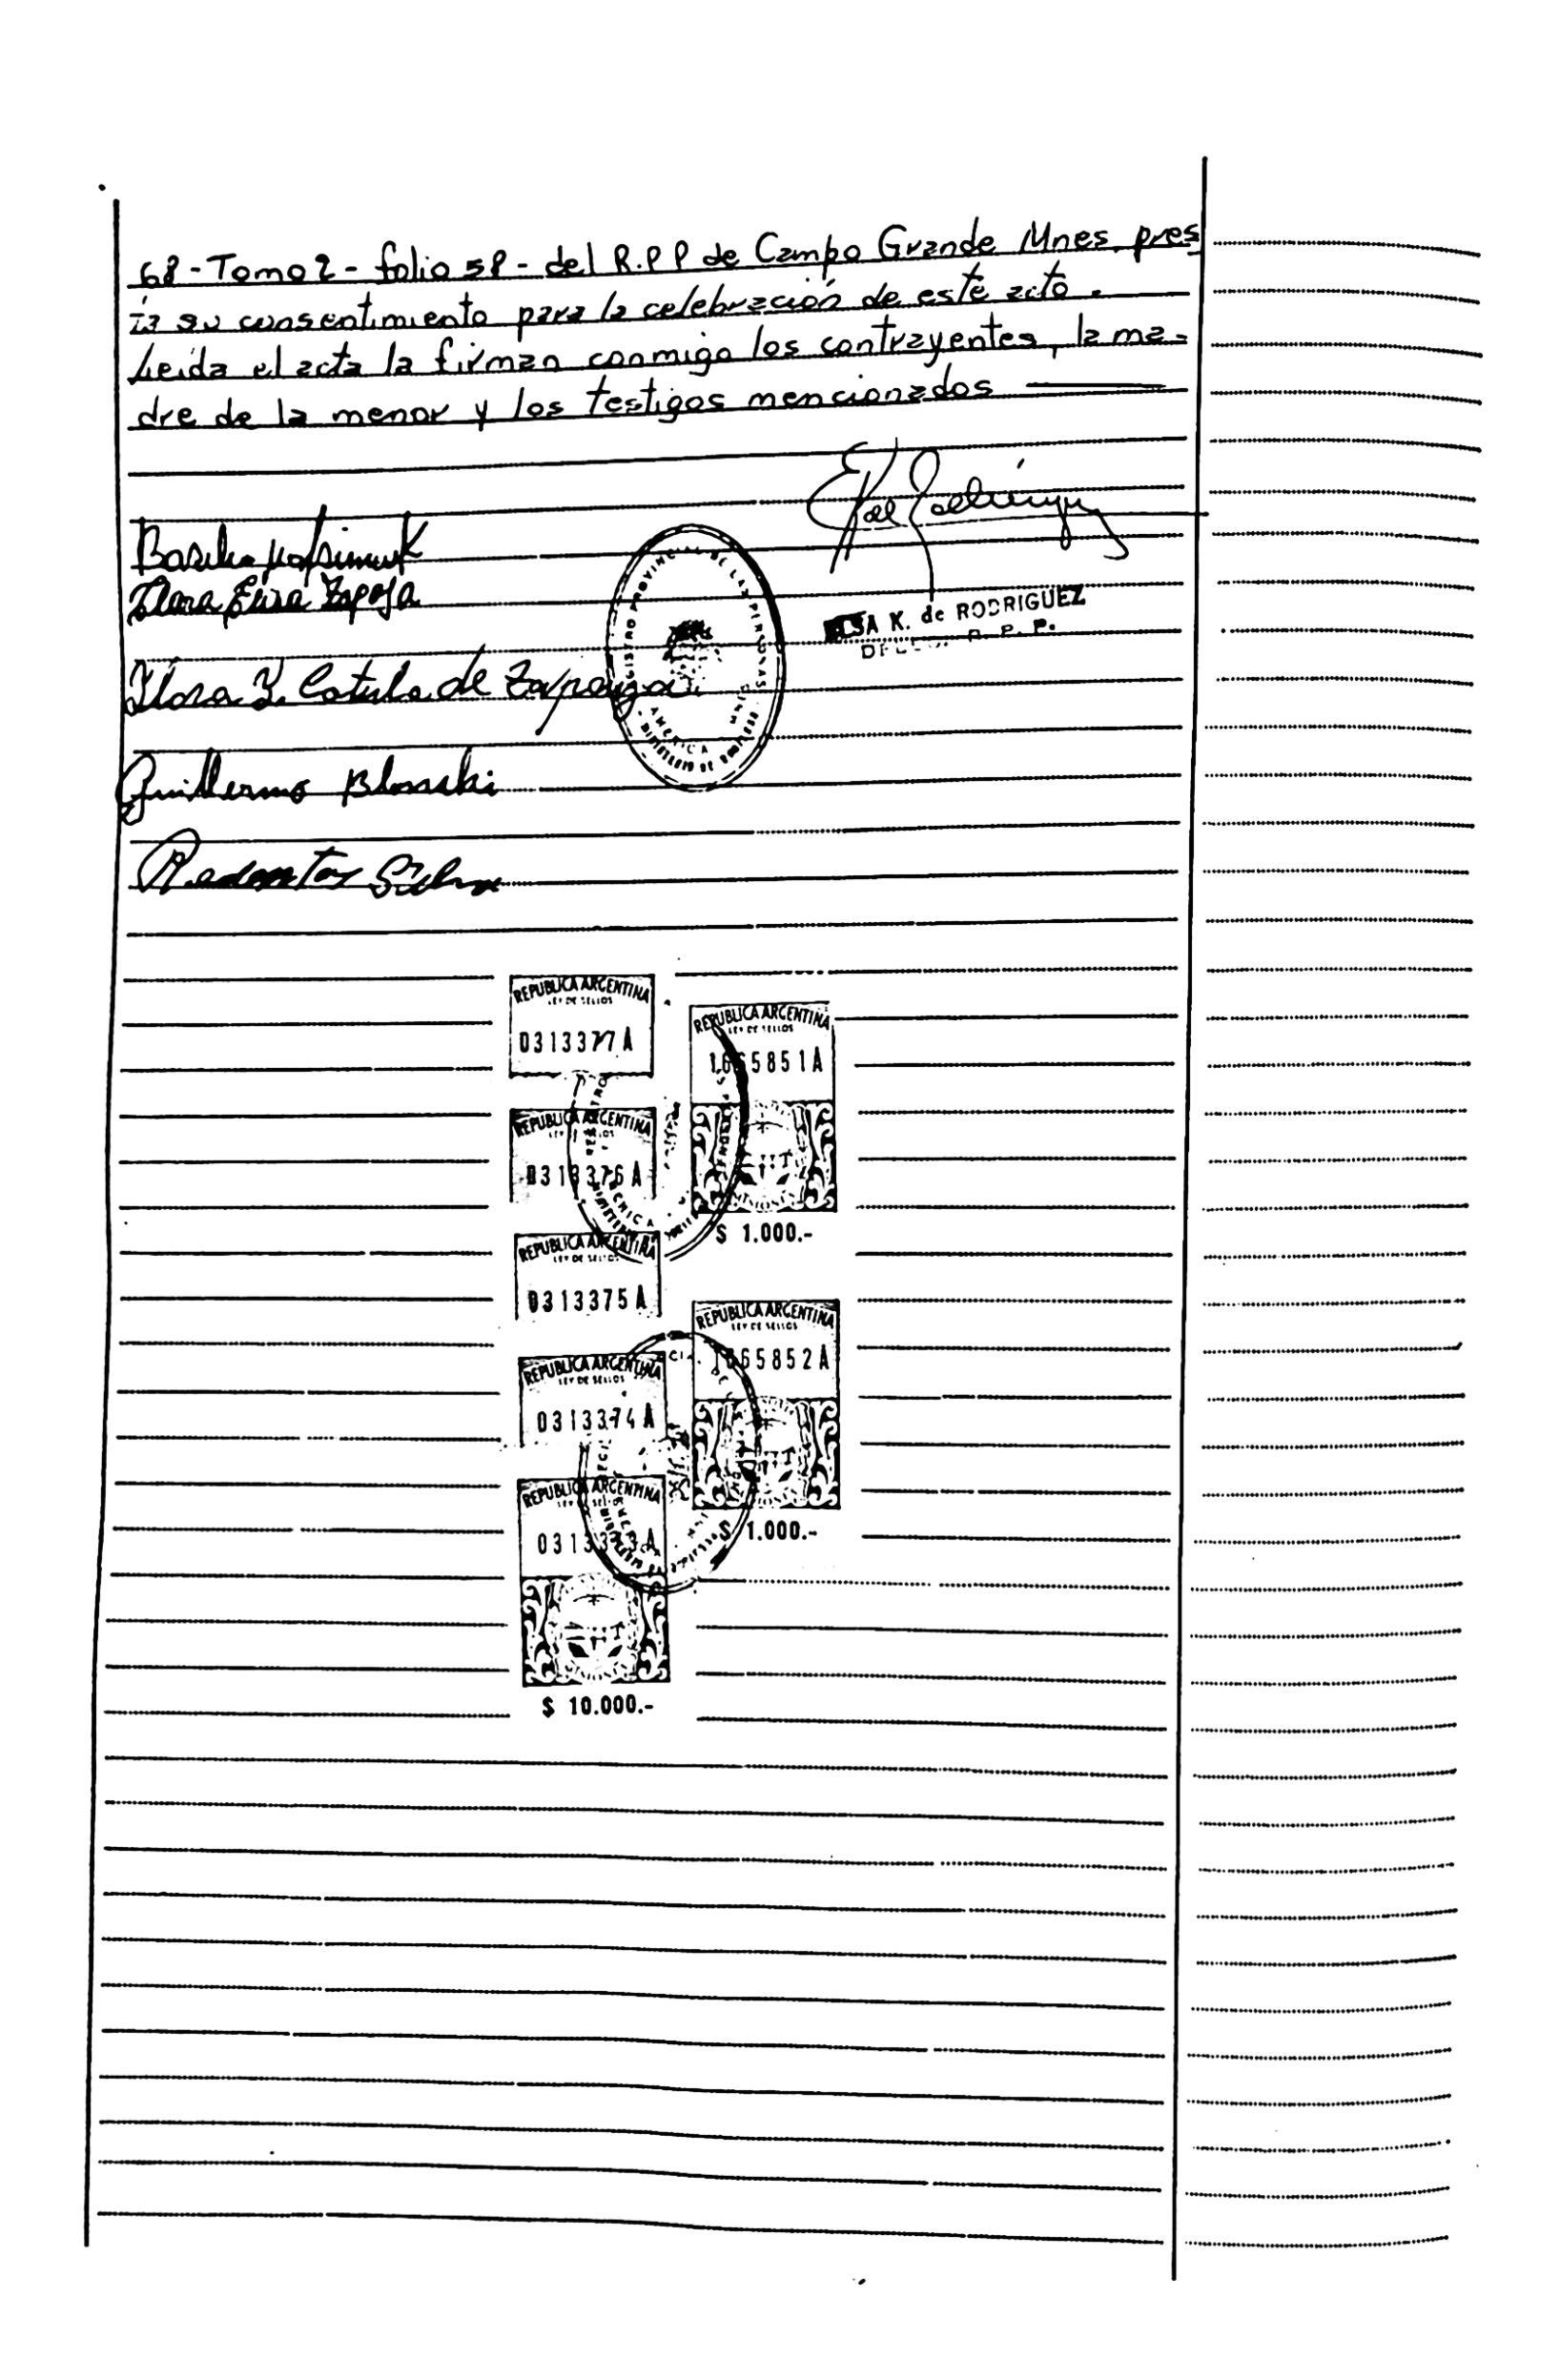 68 - Tomo 2 - folio 58 - del R.P.P de Campo Grande Mnes. pres
ta su consentimiento para la celebración de este acto.
Leida el acta la firman conmigo los contrayentes, la ma-
dre de la menor y los testigos mencionados
Flora Y. de Zapaya
Guillermo Blonski
Redentor Silva
K. de RODRIGUEZ
R. P. P.
AMERICA
REPUBLICA ARGENTINA
LEY DE SELLOS
0313377A
REPUBLICA ARGENTINA
LEY DE SELLOS
1665851A
$ 1.000.-
REPUBLICA ARGENTINA
0313376A
REPUBLICA ARGENTINA
LEY DE SELLOS
0313375A
REPUBLICA ARGENTINA
LEY DE SELLOS
1665852A
$ 1.000.-
REPUBLICA ARGENTINA
LEY DE SELLOS
0313374A
REPUBLICA ARGENTINA
0313373A
$ 10.000.-